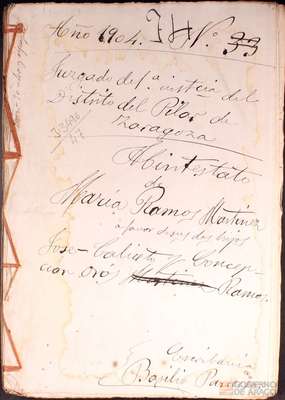 Año 1904. Nº 33
Juzgado de 1ª inst.cia del
Distrito del Pilar de
Zaragoza
J3496
47
Abintestato
de
María Ramos Martínez
a favor de sus dos hijos
José-Calixto y Concep-
ción Orós Martinez Ramos.
Escribanía
Basilio
GOBIERNO
DE ARAGON